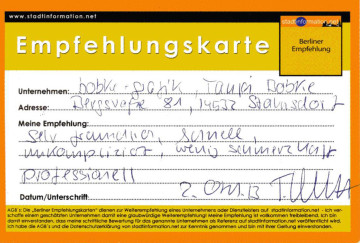 www.stadtinformation.net
stadtinformation.net
Empfehlungskarte
Berliner
Empfehlung
Unternehmen: bobke-grafik, Tanja Bobke
Adresse: Bergstraße 81, 14532 Stahnsdorf
Meine Empfehlung:
Sehr freundlich, schnell,
unkompliziert, wenig schmerzhaft
professionell
Datum/Unterschrift: 2. 13
AGB's: Die „Berliner Empfehlungskarten" dienen zur Weiterempfehlung eines Unternehmens oder Dienstleisters auf stadtinformation.net - Ich ver-
schaffe einem geschätzten Unternehmen damit eine glaubwürdige Weiterempfehlung! Meine Empfehlung ist vollkommen freibleibend. Ich bin
damit einverstanden, dass meine schriftliche Bewertung für das genannte Unternehmen als Referenz auf stadtinformation.net veröffentlicht wird.
Ich habe die AGB's und die Datenschutzerklärung von stadtinformation.net zur Kenntnis genommen und bin mit Ihrer Geltung einverstanden.